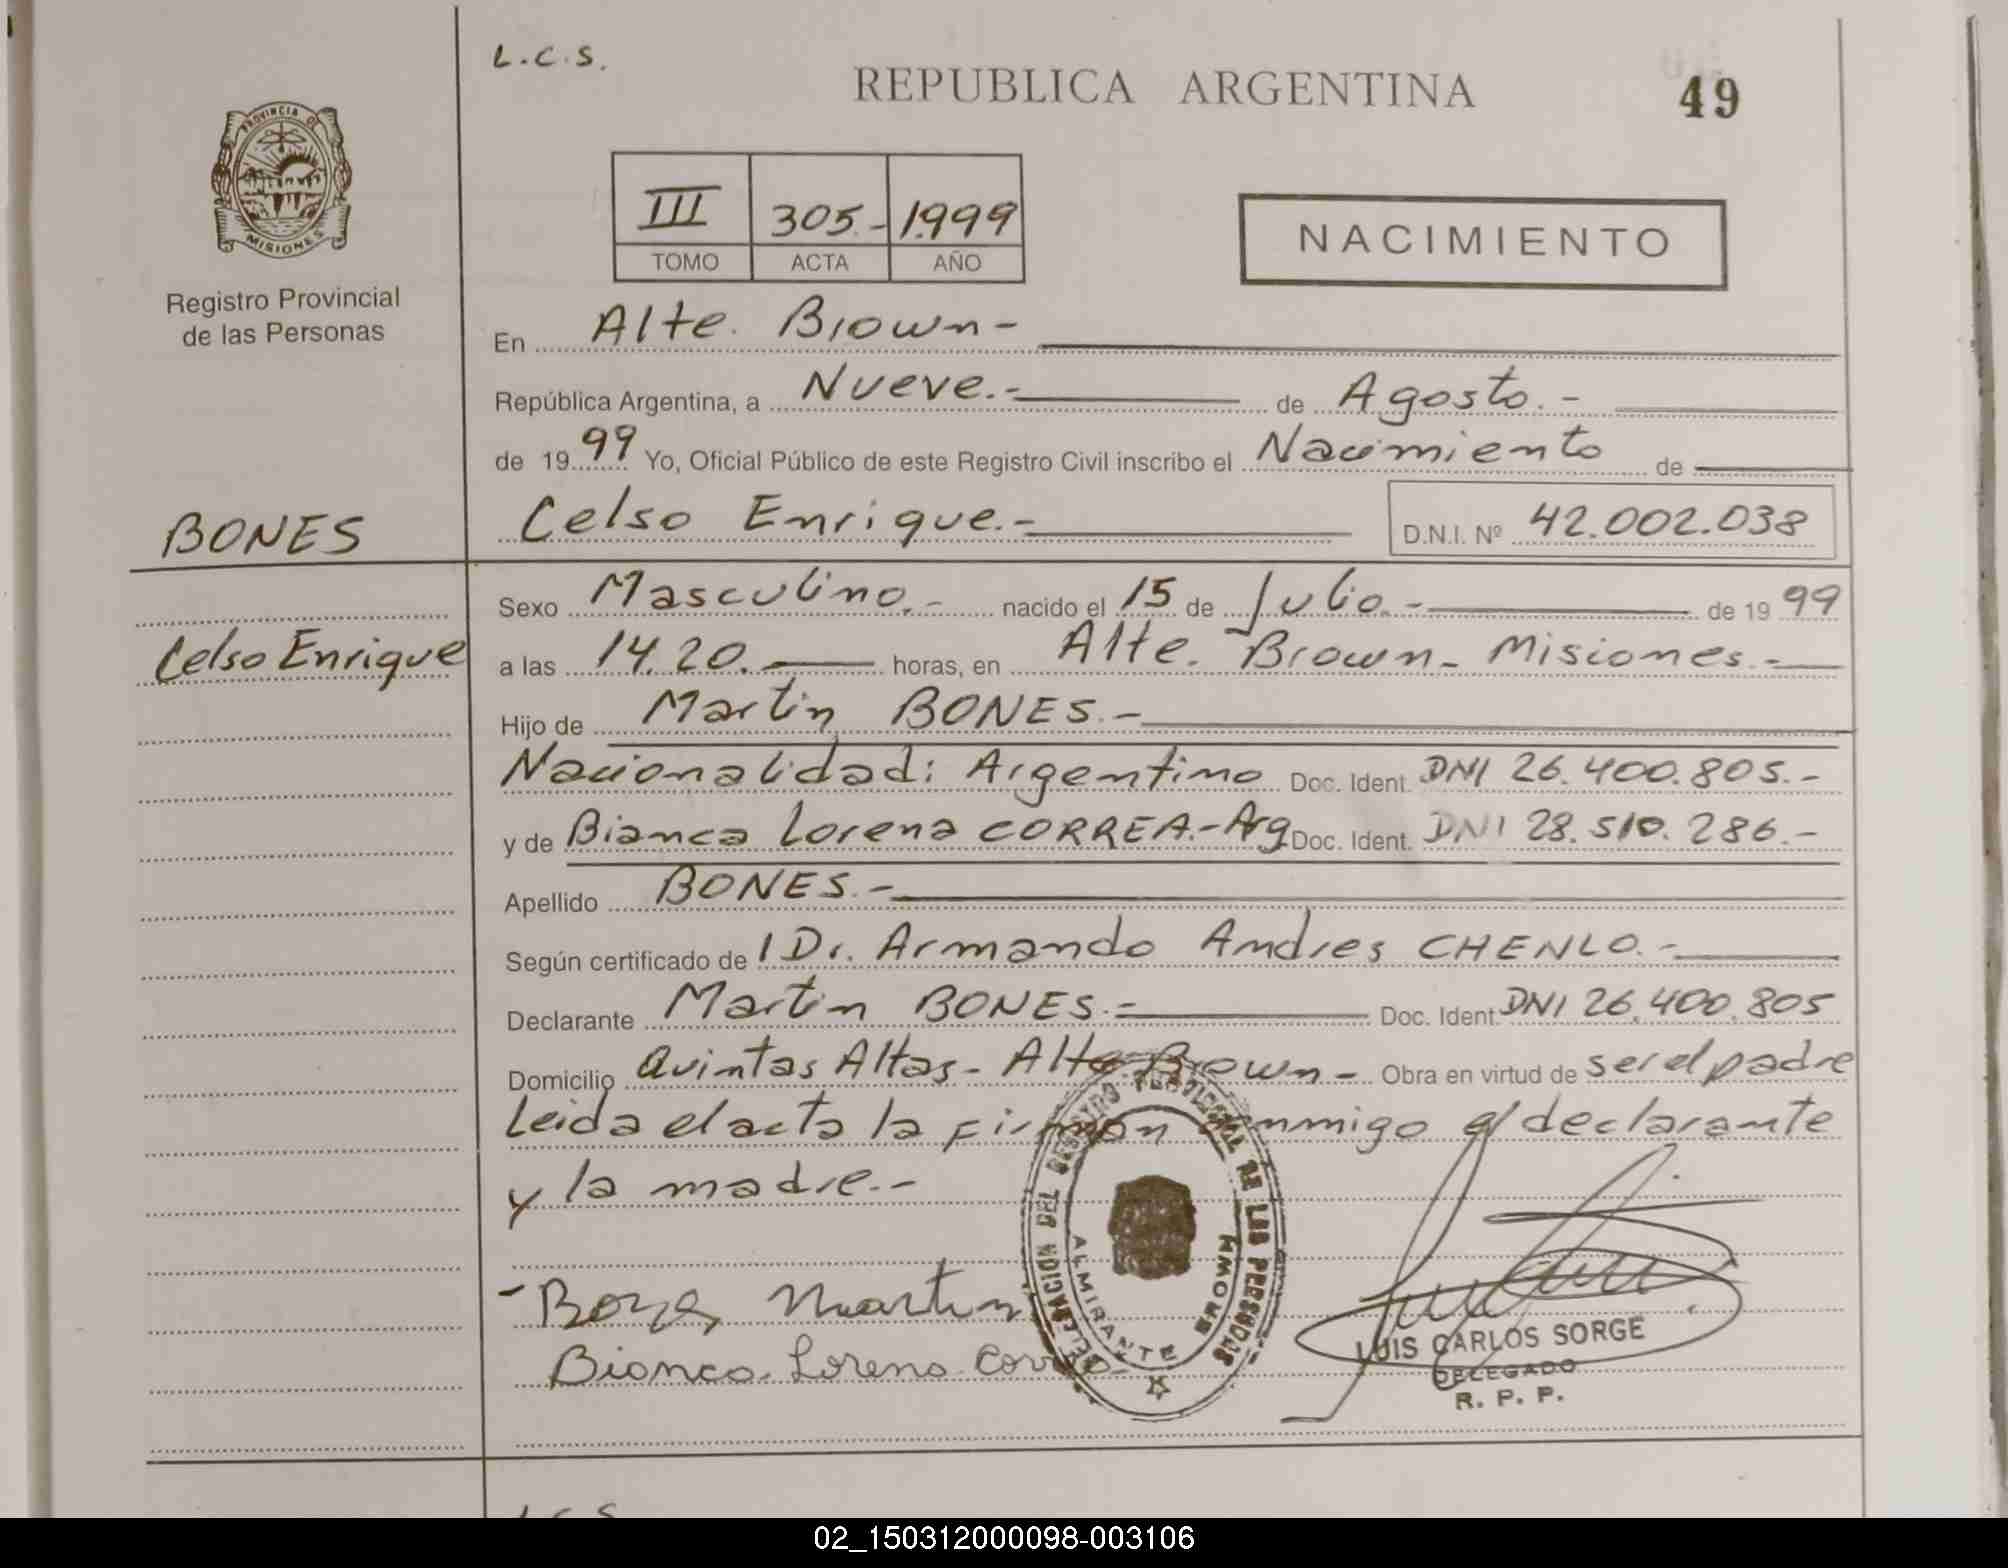 L.C.S.
REPUBLICA ARGENTINA
49
PROVINCIA DE
MISIONES
Registro Provincial
de las Personas
III 305.- 1.999
TOMO ACTA AÑO
NACIMIENTO
En Alte. Brown-
República Argentina, a Nueve.- de Agosto.-
de 1999 Yo, Oficial Público de este Registro Civil inscribo el Nacimiento de
BONES
Celso Enrique.- D.N.I. Nº 42.002.038
Sexo Masculino.- nacido el 15 de Julio.- de 1999
Celso Enrique
a las 14.20. horas, en Alte. Brown- Misiones.-
Hijo de Martin BONES.-
Nacionalidad: Argentino Doc. Ident. DNI 26.400.805.-
y de Bianca Lorena CORREA.-Arg Doc. Ident. DNI 28.510.286.-
Apellido BONES.-
Según certificado de 1 Dr. Armando Andres CHENLO.-
Declarante Martin BONES.= Doc. Ident. DNI 26.400.805
Domicilio Quintas Altas- Alte. Brown- Obra en virtud de ser el padre
Leida el acta la firman conmigo el declarante
y la madre.-
DELEGACION DEL REGISTRO PROVINCIAL DE LAS PERSONAS
ALMIRANTE BROWN
Martin
Bianca Lorena Correa
LUIS CARLOS SORGE
DELEGADO
R. P. P.
L.C.S
02_150312000098-003106